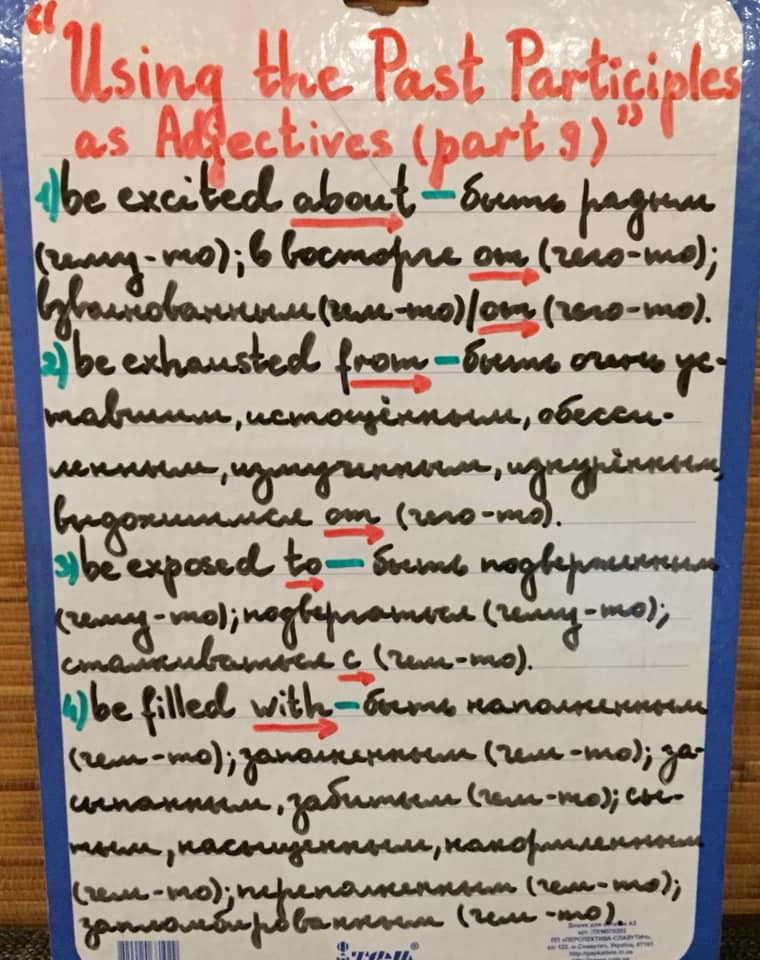 "Using the Past Participles
as Adjectives (part 9)"
1) be excited about – быть радым
(чему-то); в восторге от (чего-то);
взволнованным (чем-то)/от (чего-то).
2) be exhausted from – быть очень ус-
тавшим, истощённым, обесси-
ленным, измученным, изнурённым,
выдохшимся от (чего-то).
3) be exposed to – быть подверженным
(чему-то); подвергаться (чему-то);
сталкиваться с (чем-то).
4) be filled with – быть наполненным
(чем-то); заполненным (чем-то); за-
сыпанным, забитым (чем-то); сы-
тым, насыщенным, накормленным
(чем-то); переполненным (чем-то);
запломбированным (чем-то).
ПП «ПЕРСПЕКТИВА-СЛАВУТИЧ»,